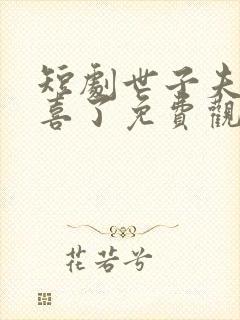 短劇世子夫
喜了免費觀
花若兮